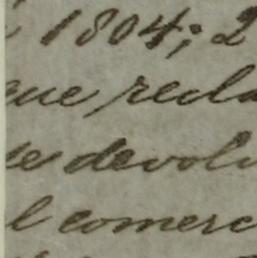 1804; 2
que recla
se devolv
l comerc